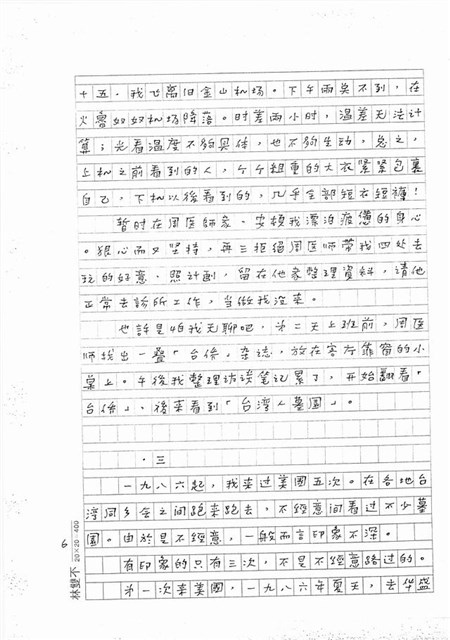 十五.我飞离旧金山机场。下午两点不到,在
火魯奴奴机场降落。时差兩小时,温差无法计
算;光看温度不夠具体,也不夠生动,总之,
上机之前看到的人,个个粗重的大衣緊緊包裹
自己,下机以後看到的,几乎全部短衣短褲!
暂时在周医師家,安頓我漂泊疲憊的身心
。狠心而又坚持,再三拒绝周医师带我四处去
玩的好意。照计劃,留在他家整理資料,请他
正常去診所工作,当做我没来。
也許是怕我无聊吧,第二天上班前,周医
师找出一疊「台侨」杂誌,放在客厅靠窗的小
桌上。午後我整理访谈笔记累了,开始翻看「
台侨」,後来看到「台湾人墓園」。
.三
一九八六起,我来过美國五次。在各地台
湾同乡会之间跑来跑去,不經意间看过不少墓
園。由於是不經意,一般而言印象不深。
有印象的只有三次,不是不經意路过的。
第一次来美國,一九八六年夏天,去华盛
林雙不 20×20=400